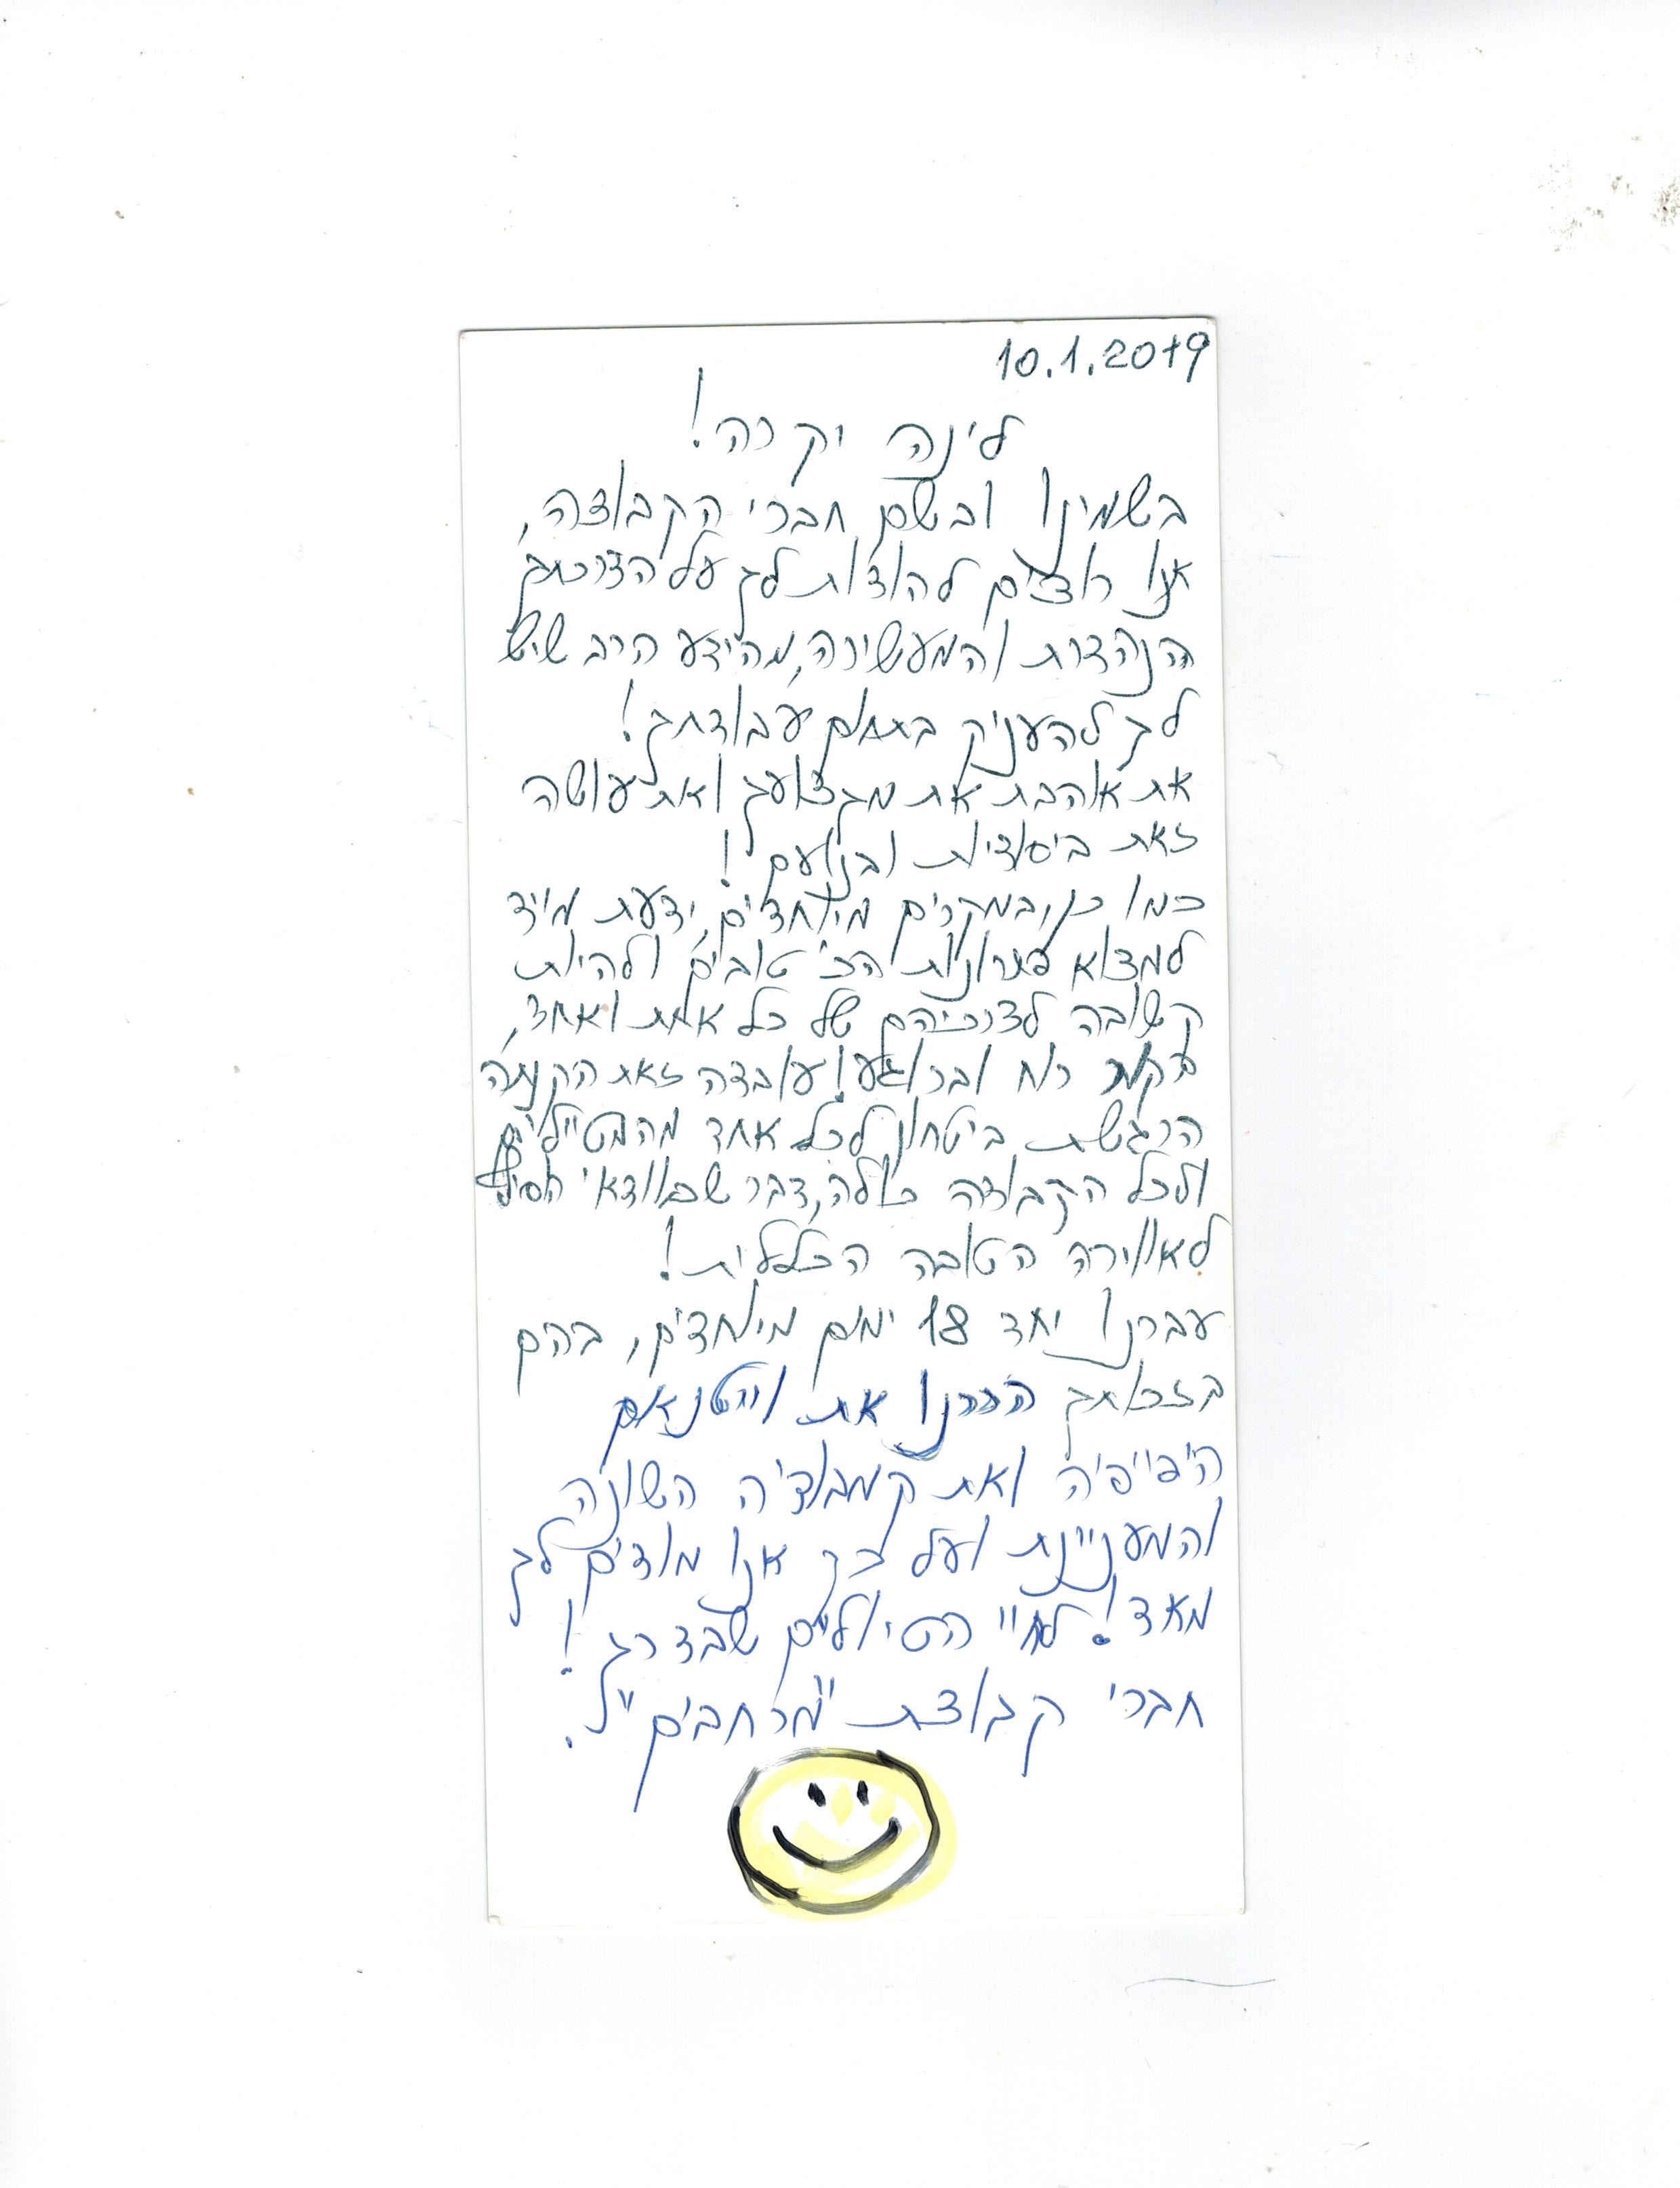 10.1.2019
לינה יקרה!
בשמינו ובשם חברי הקבוצה,
אנו רוצים להודות לך על הדרכתך
הנהדרת והמעשירה, מהידע הרב שיש
לך להעניק בתחום עבודתך!
את אוהבת את מקצועך ואת עושה
זאת ביסודיות ובנועם!
כמו כן, ובמקרים מיוחדים, ידעת מיד
למצוא פתרונות הכי טובים ולהיות
קשובה לצרכיהם של כל אחת ואחד,
בקור רוח וברוגע! עובדה זאת הקנתה
הרגשת ביטחון לכל אחד מהמטיילים
ולכל הקבוצה כולה, דבר שבוודאי הוסיף
לאווירה הטובה הכללית!
עברנו יחד 18 ימים מיוחדים, בהם
בזכותך הכרנו את וייטנאם
היפייפיה ואת קמבודיה השונה
והמעניינת ועל כך אנו מודים לך
מאד! לחיי הטיולים שבדרך!
חברי קבוצת "מרחבים"ל.